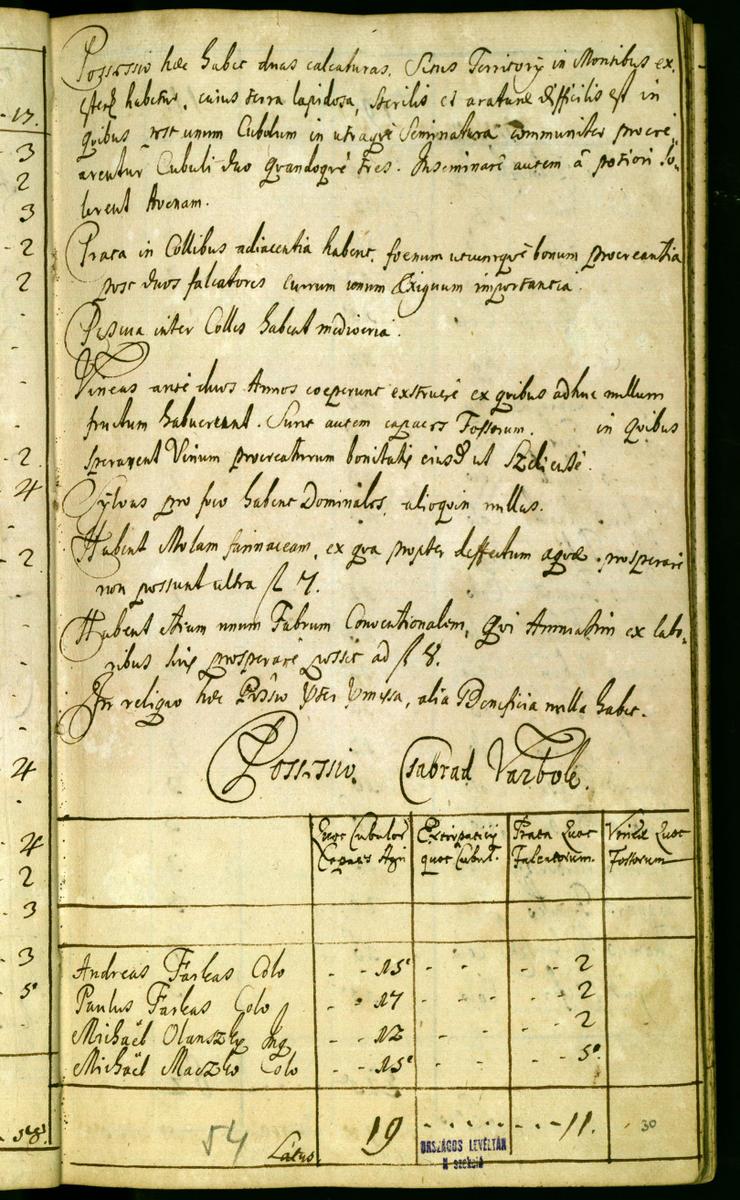 Possessio hæc habet duas calcaturas. Situs Territorij in Montibus ex-
habetur, cuius terra lapidosa, sterilis et aratura difficilis est in
quibus post unum Cubulum in utraque Seminatura communiter procre-
arentur Cubuli duo quandoque tres. Inseminare autem a potiori so-
lerent Avenam.
Prata in Collibus adiacentia habent, foenum utcunque bonum procreantia
post duos falcatores currum unum Exiguum importantia.
Pascua inter Colles habent mediocria.
Vineas ante duos Annos coeperunt exstruere ex quibus adhuc nullum
fructum habuerunt. Sunt autem capaces Fossorum. in quibus
sperarent Vinum procreaturum bonitatis eiusd ut
Sylvas pro foco habent Dominales, alioquin nullas.
Habent Molam farinaceam, ex qua propter deffectum aquæ prosperare
non possunt ultra fl 7.
Habent etiam unum Fabrum Conventionalem, qui Annuatim ex labo-
ribus suis prosperare possit ad fl 8.
In reliquo hæc Possio alia Beneficia nulla habet.
Possessio Csabrad Varbok.
Quot Cubulor Capaces Agri Extirpatitij quot Cubul. Prata Quot Falcatorum. Vineæ Quot Fossorum
Andreas Farkas Colo - - 15 - - - - 2
Paulus Farkas Colo - - 17 - - 2
Michaël Olanszky Inq - - 12 - - 2
Michaël Maczko Colo - - 15 - - - - 5
54 Latus 19 - - - - 11. 30
ORSZÁGOS LEVÉLTÁR
N szekció
17.
3
2
3
2
2
2
4
2
4
4
2
3
3
5
58.